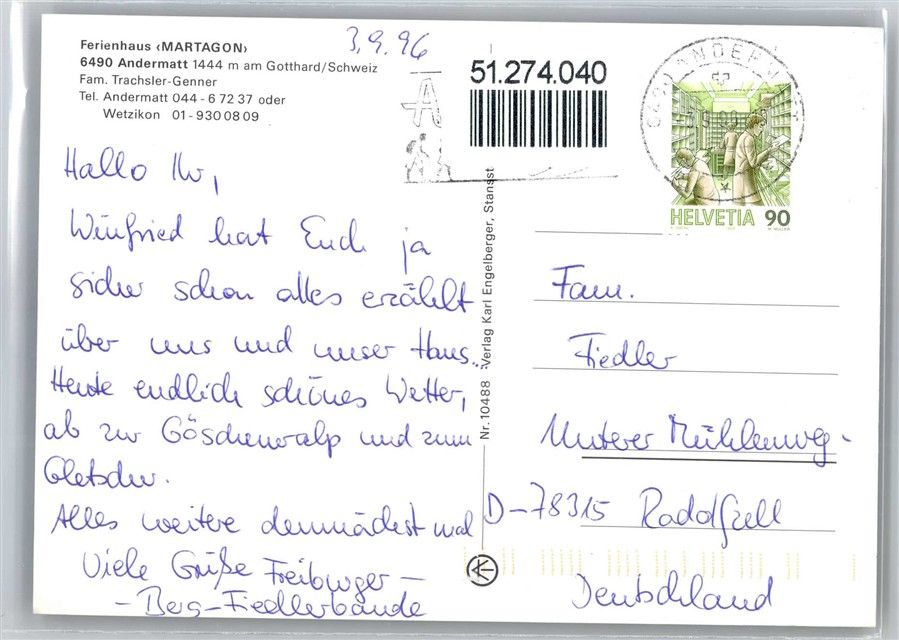 Ferienhaus ‹MARTAGON›
6490 Andermatt 1444 m am Gotthard/Schweiz
Fam. Trachsler-Genner
Tel. Andermatt 044 - 6 72 37 oder
Wetzikon 01 - 930 08 09
3.9.96
51.274.040
ANDERMATT
HELVETIA 90
Hallo Ihr,
Winfried hat Euch ja
sicher schon alles erzählt
über uns und unser Haus...
Heute endlich schönes Wetter,
ab zur Göscheneralp und zum
Gletscher.
Alles weitere demnächst mal
Viele Grüße Freiburger-
-Berg-Fiedlerbande
Nr. 10488 Verlag Karl Engelberger, Stansst
Fam.
Fiedler
Unterer Mühlenweg -
D-78315 Radolfzell
Deutschland